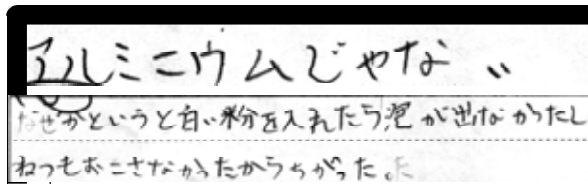 アルミニウムじゃない
なぜかというと白い粉を入れたら泡が出なかったし
ねつもおこさなかったからちがった。た